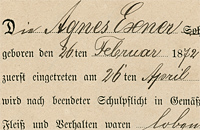 Die Agnes Exner
geboren den 26ten Februar 1872
zuerst eingetreten am 26ten April
wird nach beendeter Schulpflicht in Gemäß
Fleiß und Verhalten waren loben